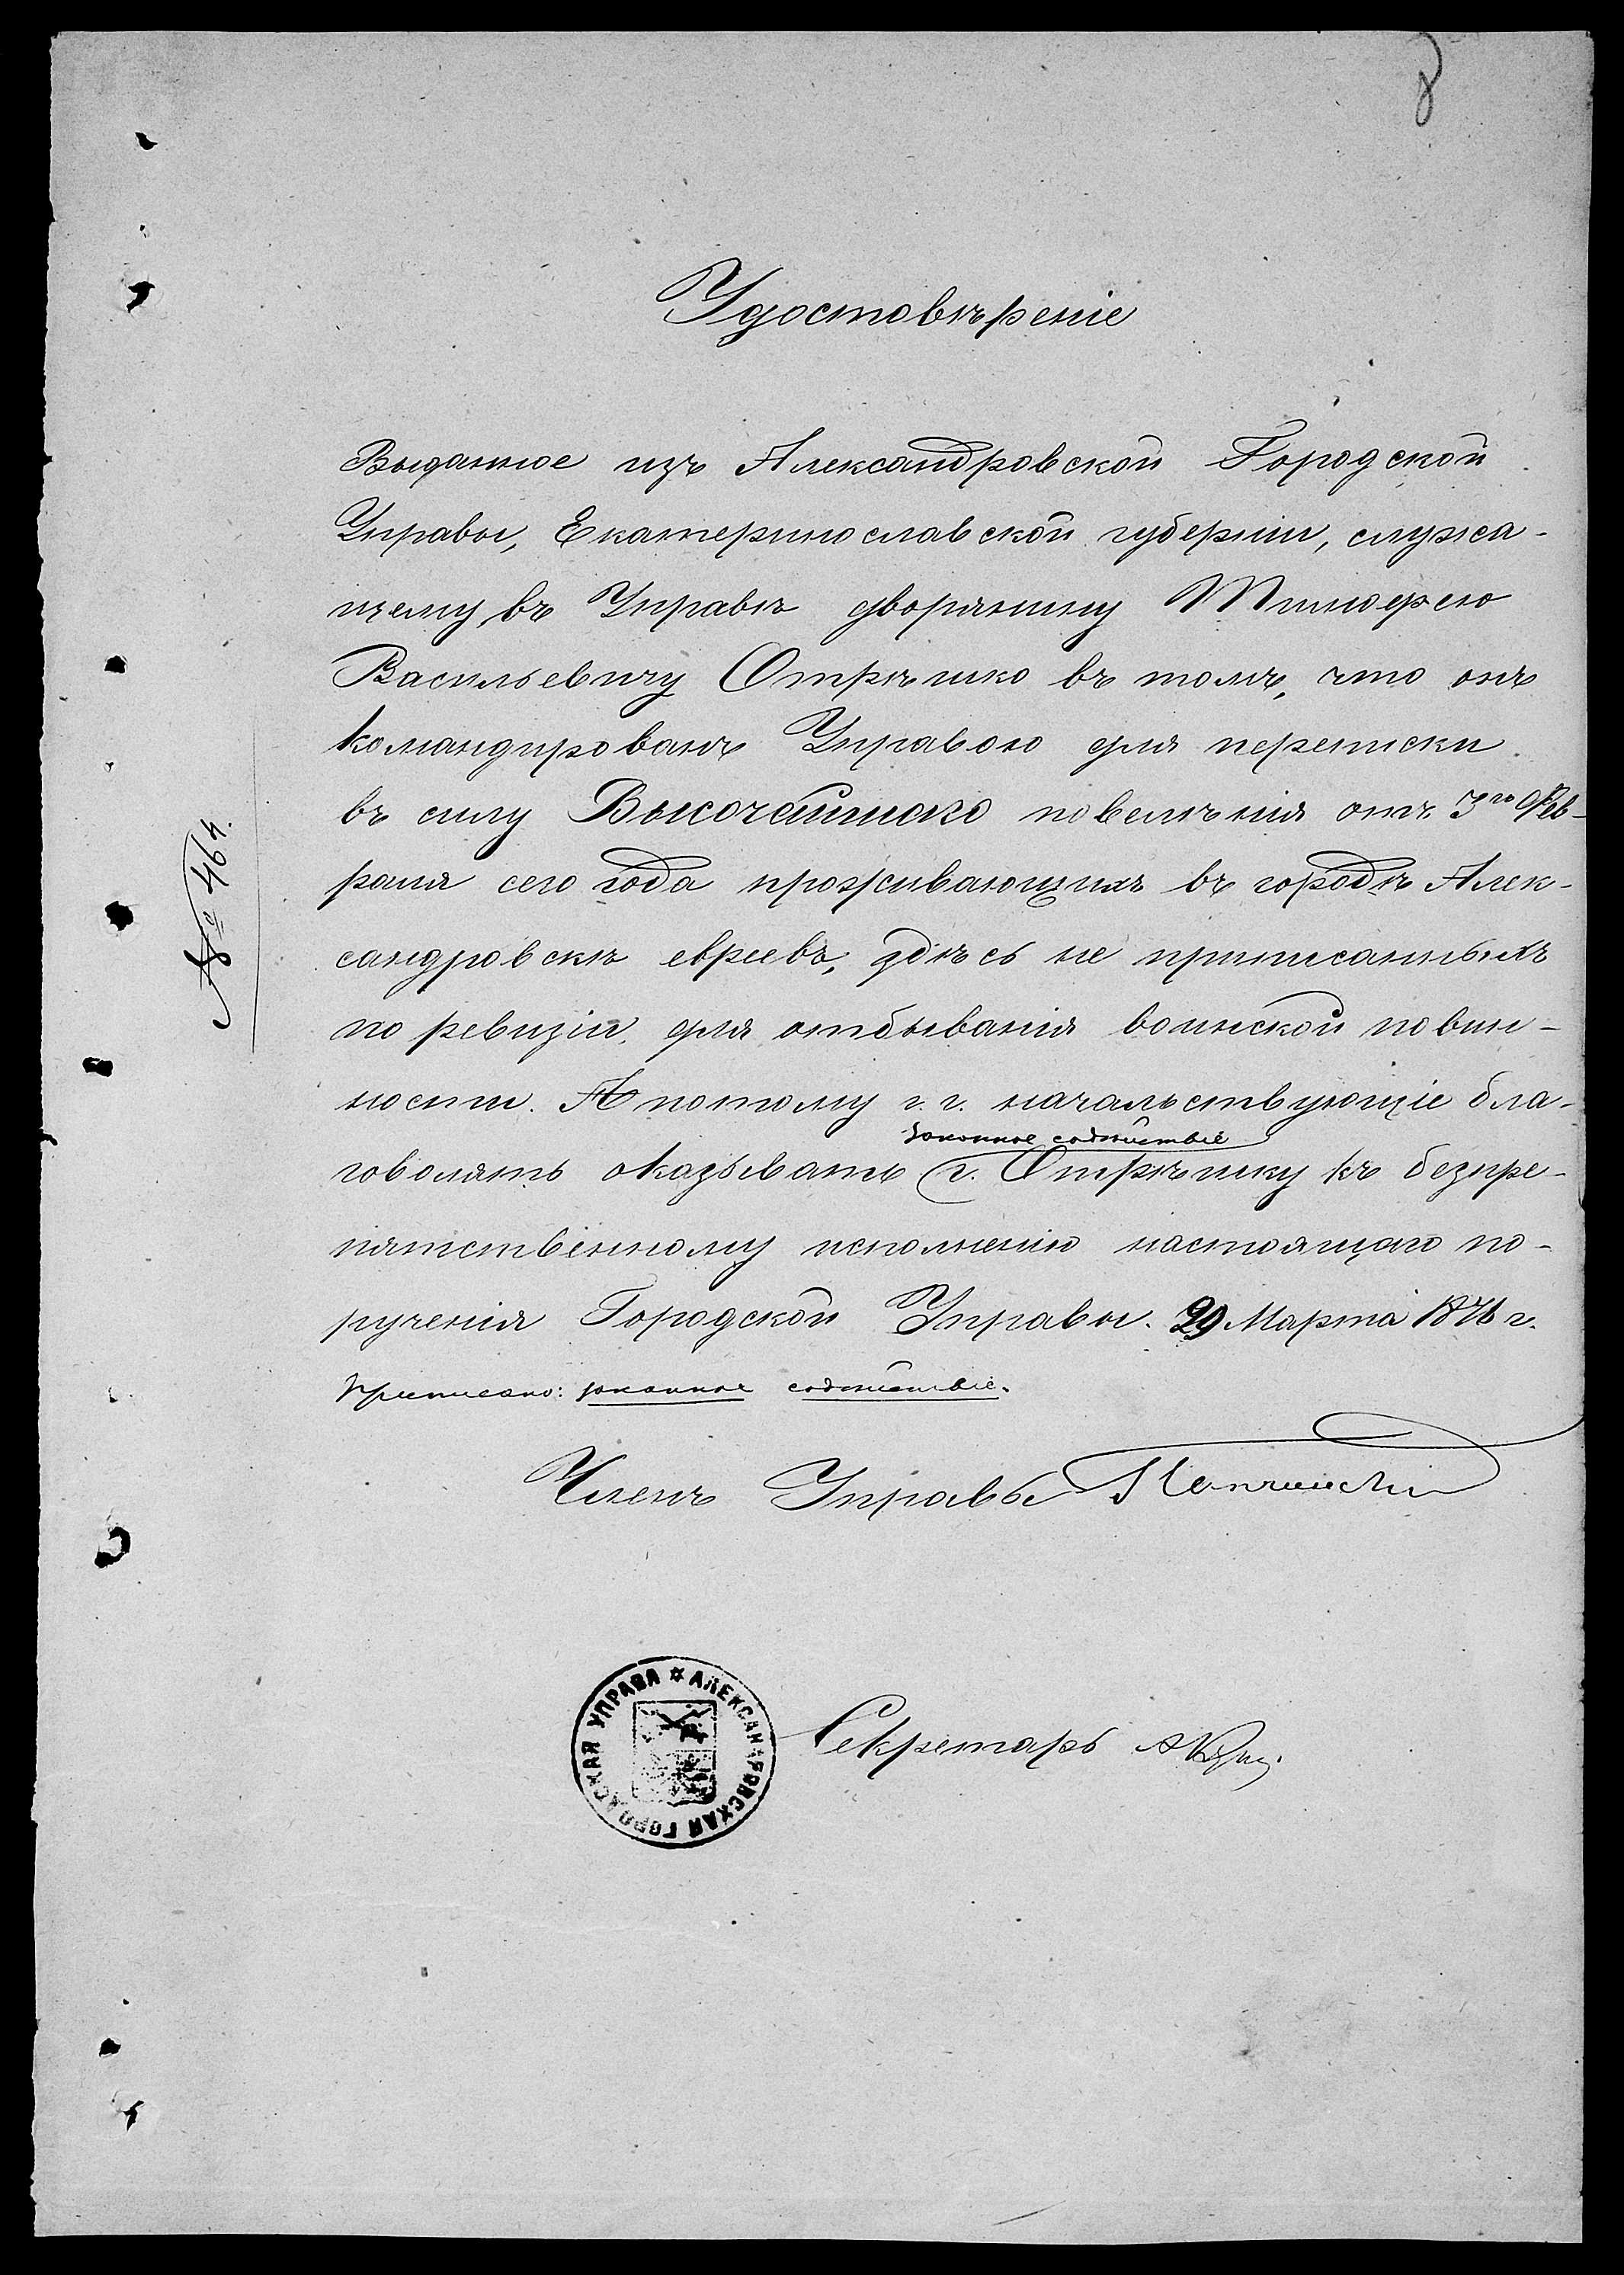 8
Удостовѣреніе
Выданное изъ Александровской Городской
Управы, Екатеринославской губерніи, служа-
щему въ Управѣ дворянину Тимофею
Васильевичу Отрѣшко въ томъ, что онъ
командированъ Управою для переписки
въ силу Высочайшаго повелѣнія отъ 3го Фев-
раля сего года проживающихъ въ городѣ Алек-
сандровскѣ евреевъ, здѣсь не приписанныхъ
по ревизіи, для отбыванія воинской повин-
ности. А потому г.г. начальствующіе бла-
законное содѣйствіе
говолятъ оказывать г. Отрѣшку къ безпре-
пятственному исполненію настоящаго по-
рученія Городской Управы. 29 Марта 1876 г.
Приписано: законное содѣйствіе.
Членъ Управы
Секретарь
№ 464.
АЛЕКСАНДРОВСКАЯ ГОРОДСКАЯ УПРАВА